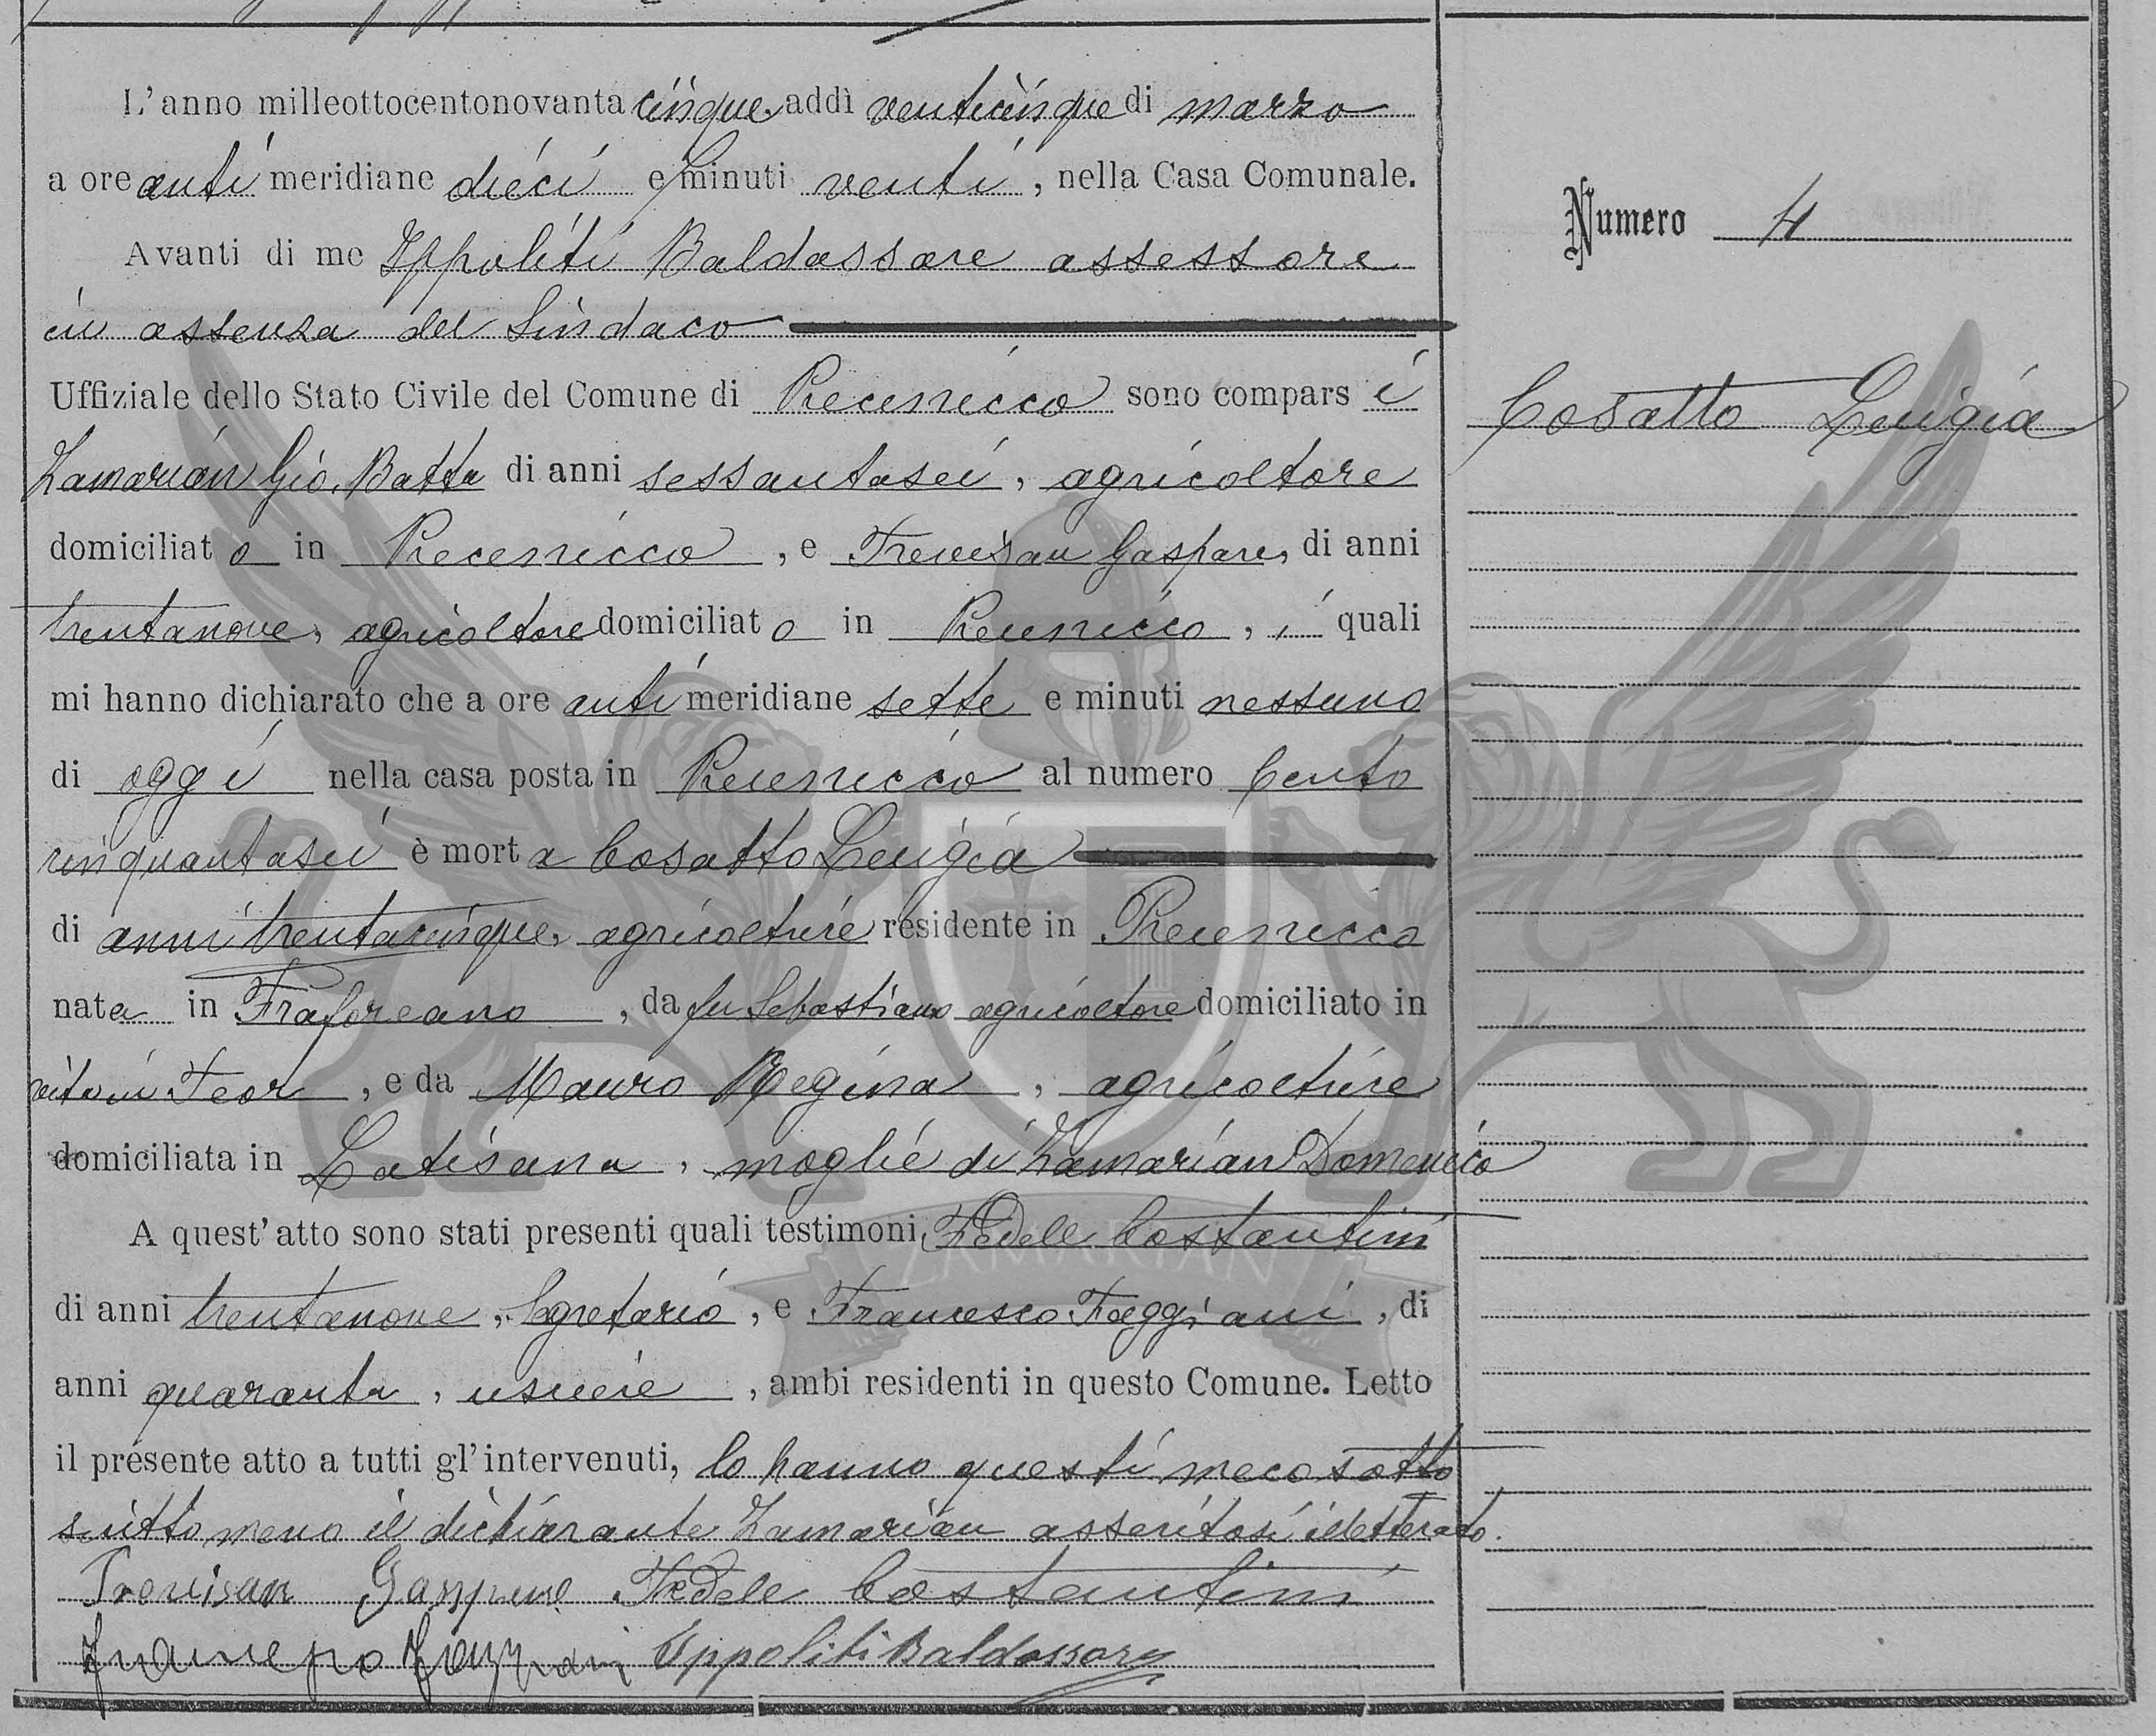 L'anno milleottocentonovanta cinque, addì venticinque di marzo
a ore anti meridiane dieci e minuti venti, nella Casa Comunale.
Avanti di me Ippoliti Baldassare assessore
in assenza del Sindaco
Uffiziale dello Stato Civile del Comune di Precenicco sono compars i
Zamarian Gio. Batta di anni sessantasei, agricoltore
domiciliat o in Precenicco, e Trevisan Gaspare, di anni
trentanove, agricoltore domiciliat o in Precenicco, i quali
mi hanno dichiarato che a ore anti meridiane sette e minuti nessuno
di oggi nella casa posta in Precenicco al numero Cento
cinquantasei è mort a Cosatto Luigia
di anni trentacinque, agricoltrice residente in Precenicco
nata in Fraforeano, da fu Sebastiano agricoltore domiciliato in
vita in Teor, e da Mauro Regina, agricoltrice
domiciliata in Latisana, moglie di Zamarian Domenico
A quest'atto sono stati presenti quali testimoni Fedele Costantini
di anni trentanove, Segretario, e Francesco Faggiani, di
anni quaranta, usciere, ambi residenti in questo Comune. Letto
il presente atto a tutti gl'intervenuti, lo hanno questi meco sotto
scritto meno il dichiarante Zamarian asseritosi illetterato.
Trevisan Gaspare Fedele Costantini
Francesco Faggiani Ippoliti Baldassare
Numero 4
Cosatto Luigia
ZAMARIAN